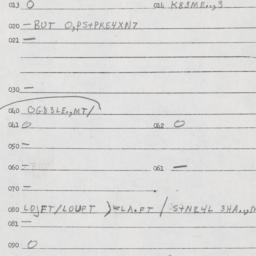 013 O 014 K83ME.,,3
020 - BUT O,PS+PKE4XN7
021 -
030 -
040 OGD3LE.,MT/
041 O 042 O
050 -
060 - 061 -
070 -
080 LOJFT/LOUPT )=LA.FT / S+NE4L 3HA.,
081 -
090 O